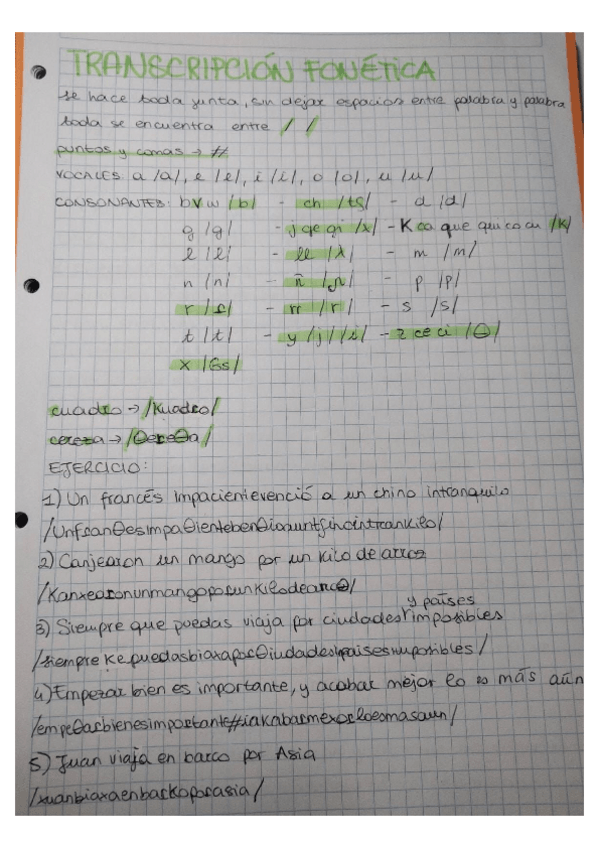 TRANSCRIPCIÓN FONÉTICA
se hace toda junta, sin dejar espacios entre palabra y palabra
toda se encuentra entre / /
puntos y comas → #
VOCALES a /a/, e /e/, i /i/, o /o/, u /u/
CONSONANTES: b v w /b/ - ch /tʃ/ - d /d/
g /g/ - j ge gi /x/ - K ca que qui co cu /K/
l /l/ - ll /ʎ/ - m /m/
n /n/ - ñ /ɲ/ - p /p/
r /ɾ/ - rr /r/ - s /s/
t /t/ - y /j/ /i/ - z ce ci /θ/
x /Gs/
cuadro → /Kuadɾo/
cereza → /θeɾeθa/
EJERCICIO:
1) Un francés impaciente venció a un chino intranquilo
/Unfɾanθesimpaθientebenθioauntʃinointɾankilo/
2) Canjearon un mango por un kilo de arroz
/Kanxeaɾonunmangopoɾunkilodearoθ/
y países
3) Siempre que puedas viaja por ciudades imposibles
/siempɾeKepuedasbiaxapoɾθiudadesipaisesimposibles/
4) Empezar bien es importante, y acabar mejor lo es más aún
/empeθaɾbienesimpoɾtante#iakabaɾmexoɾloesmasaun/
5) Juan viaja en barco por Asia
/xuanbiaxaenbaɾkopoɾasia/